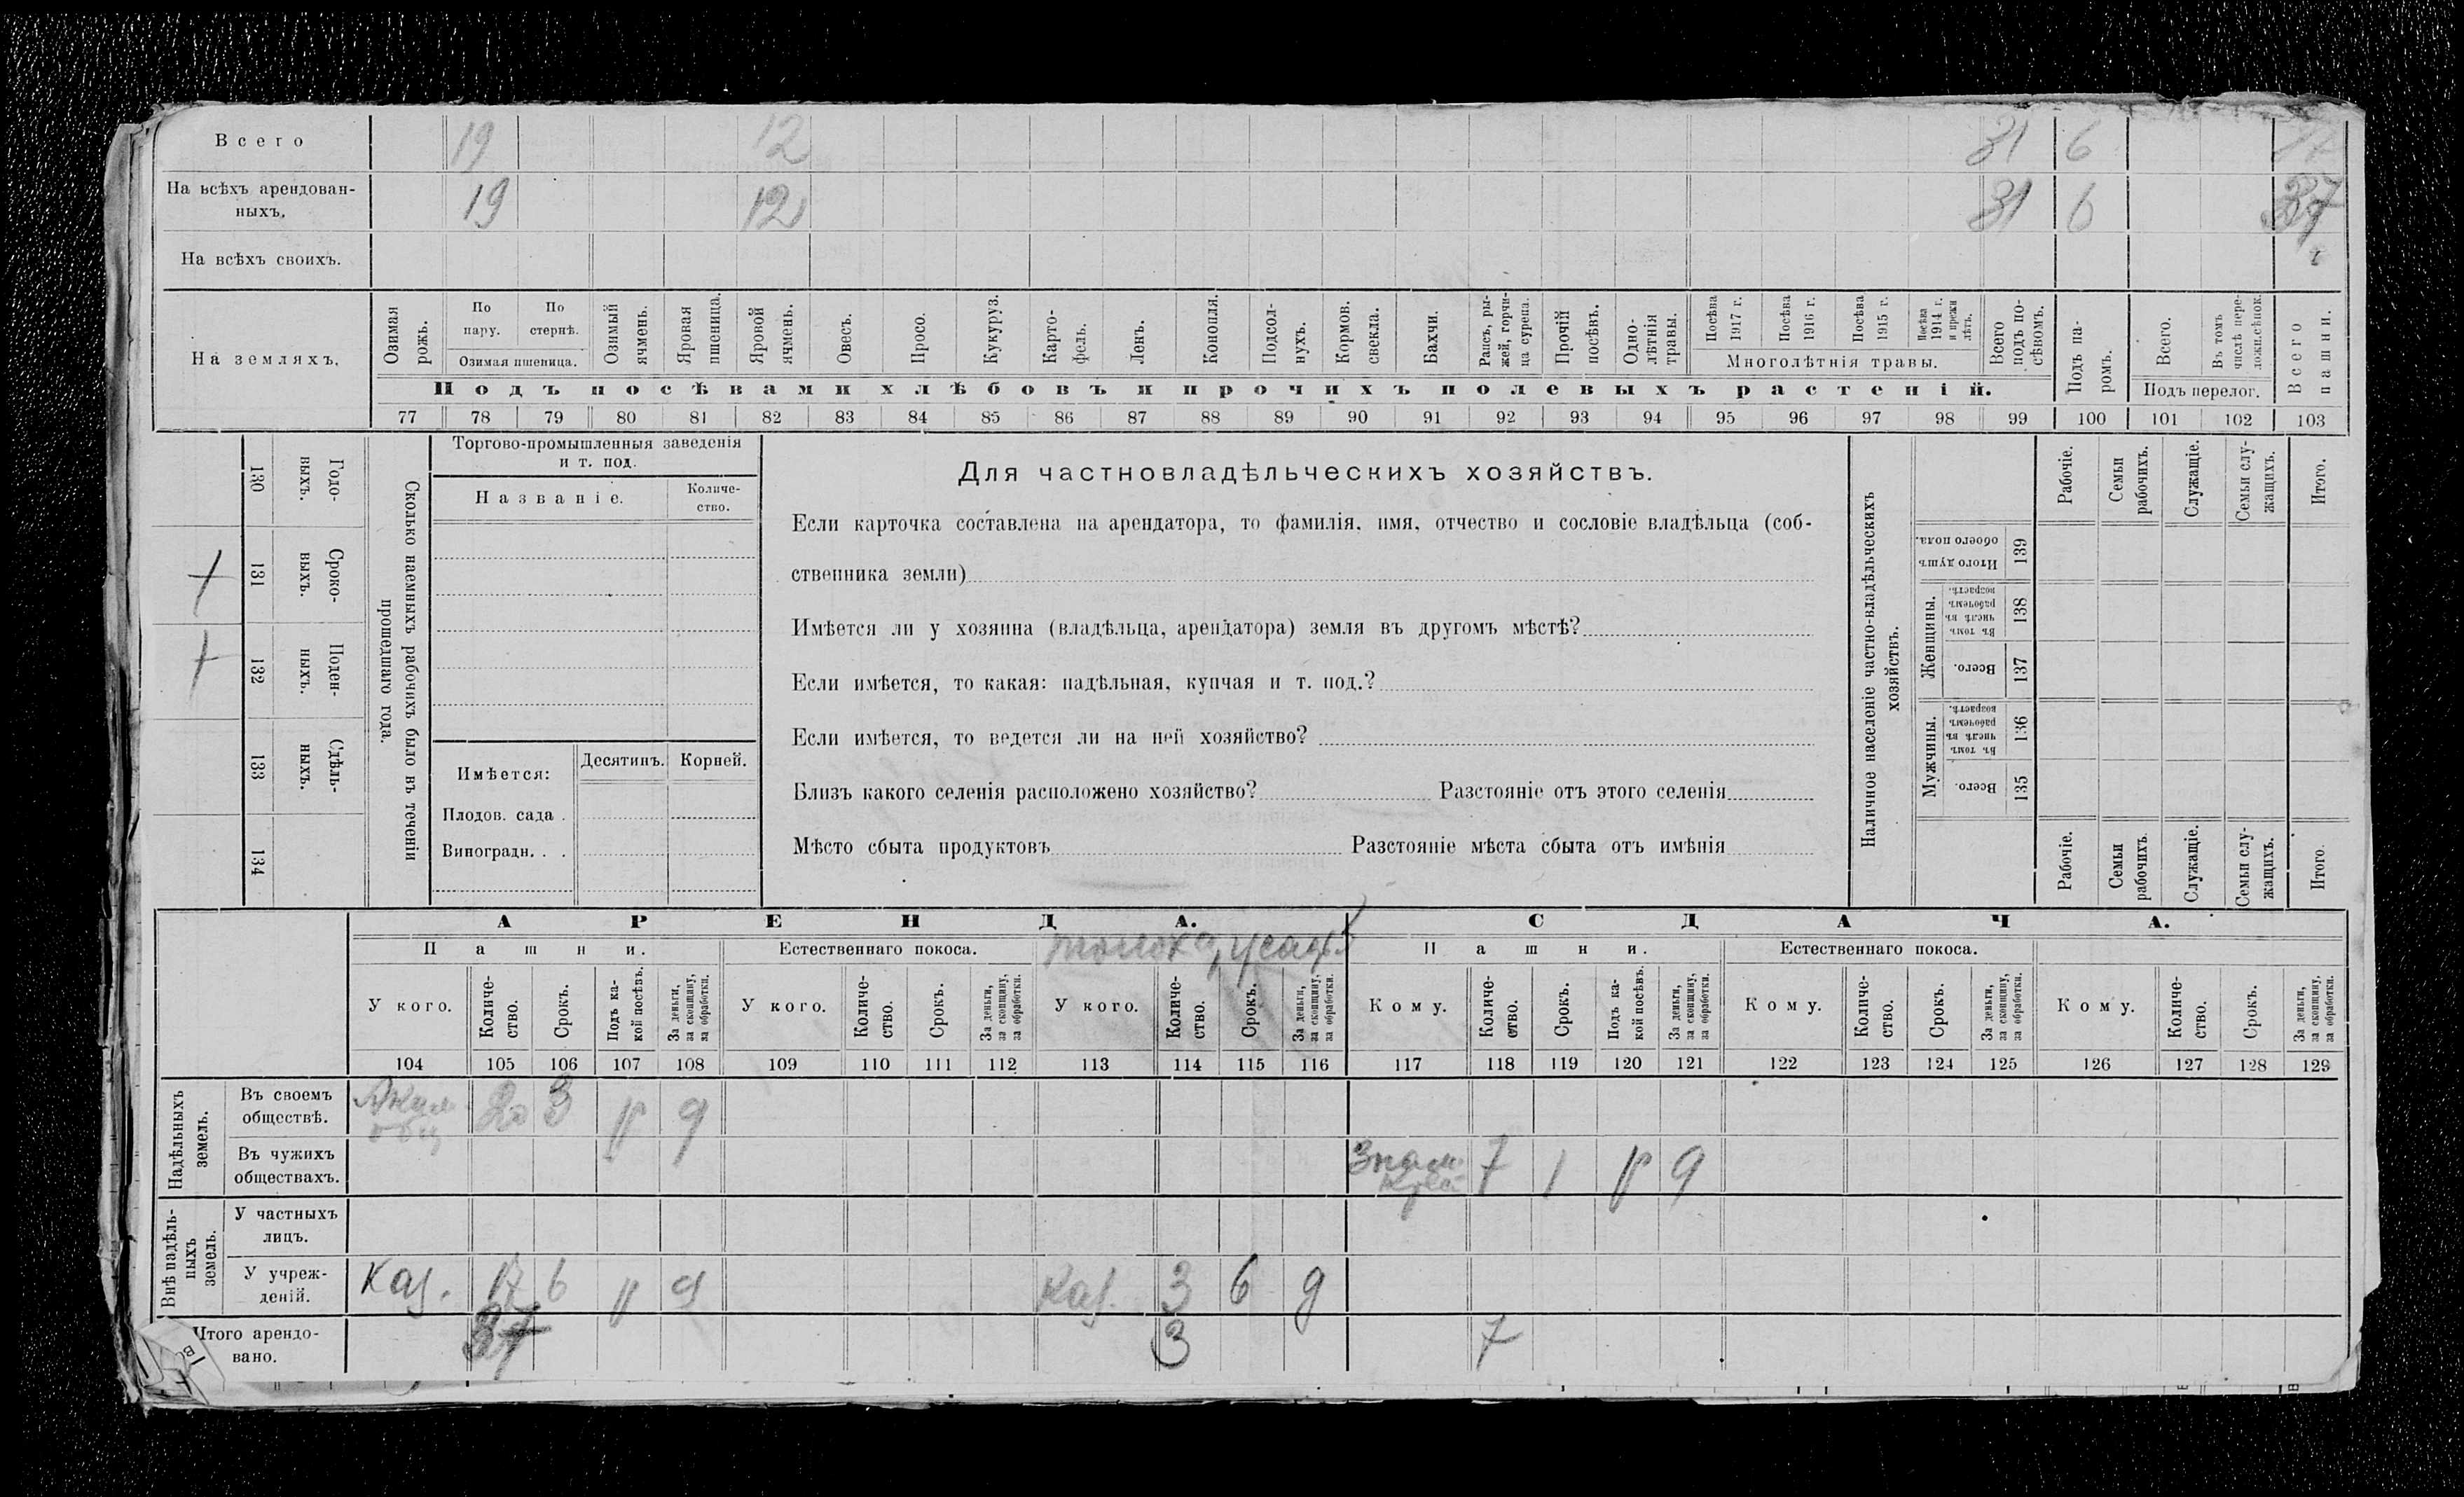 Всего 19 12 31 6
На всѣхъ арендован-
ныхъ. 19 12 31 6 37
На всѣхъ своихъ.
На земляхъ.
Озимая рожь.
По пару.
По стернѣ.
Озимая пшеница.
Озимый ячмень.
Яровая пшеница.
Яровой ячмень.
Овесъ.
Просо.
Кукуруз.
Карто-
фель.
Ленъ.
Конопля.
Подсол-
нухъ.
Кормов.
свекла.
Бахчи.
Рапсъ, ры-
жей, горчи-
ца сурепа.
Прочій
посѣвъ.
Одно-
лѣтнія
травы.
Посѣва
1917 г.
Посѣва
1916 г.
Посѣва
1915 г.
Посѣва
1914 г.
и прежн
лѣтъ.
Многолѣтнія травы.
Всего
подъ по-
сѣвомъ.
Подъ па-
ромъ.
Всего.
Въ томъ
числѣ пере-
ложн.сѣнок.
Подъ перелог.
Всего
пашни.
Подъ посѣвами хлѣбовъ и прочихъ полевыхъ растеній.
77 78 79 80 81 82 83 84 85 86 87 88 89 90 91 92 93 94 95 96 97 98 99 100 101 102 103
130 Годо-
выхъ.
131 Сроко-
ныхъ.
132 Поден-
ныхъ.
133 Сдѣль-
ныхъ.
134
Сколько наемныхъ рабочихъ было въ теченіи
прошедшаго года.
Торгово-промышленныя заведенія
и т. под.
Названіе.
Количе-
ство.
Имѣется:
Десятинъ.
Корней.
Плодов. сада .
Виноградн. . .
Для частновладѣльческихъ хозяйствъ.
Если карточка составлена на арендатора, то фамилія, имя, отчество и сословіе владѣльца (соб-
ственника земли)
Имѣется ли у хозяина (владѣльца, арендатора) земля въ другомъ мѣстѣ?
Если имѣется, то какая: надѣльная, купчая и т. под.?
Если имѣется, то ведется ли на ней хозяйство?
Близъ какого селенія расположено хозяйство? Разстояніе отъ этого селенія
Мѣсто сбыта продуктовъ Разстояніе мѣста сбыта отъ имѣнія
Наличное населеніе частно-владѣльческихъ
хозяйствъ.
Итого душъ
обоего пола.
139
Женщины.
Въ томъ
числѣ въ
рабочемъ
возрастѣ.
138
Всего.
137
Мужчины.
Въ томъ
числѣ въ
рабочемъ
возрастѣ.
136
Всего.
135
Рабочіе.
Семьи
рабочихъ.
Служащіе.
Семьи слу-
жащихъ.
Итого.
Рабочіе.
Семьи
рабочихъ
Служащіе.
Семьи слу-
жащихъ.
Итого.
АРЕНДА.
СДАЧА.
Пашни.
Естественнаго покоса.
Пашни.
Естественнаго покоса.
У кого.
Количе-
ство.
Срокъ.
Подъ ка-
кой посѣвъ.
За деньги,
за скопщину,
за обработки.
У кого.
Количе-
ство.
Срокъ.
За деньги,
за скопщину,
за обработки.
У кого.
Количе-
ство.
Срокъ.
За деньги,
за скопщину,
за обработки.
Кому.
Количе-
ство.
Срокъ.
Подъ ка-
кой посѣвъ.
За деньги,
за скопщину,
за обработки.
Кому.
Количе-
ство.
Срокъ.
За деньги,
за скопщину,
за обработки.
Кому.
Количе-
ство.
Срокъ.
За деньги,
за скопщину,
за обработки.
104 105 106 107 108 109 110 111 112 113 114 115 116 117 118 119 120 121 122 123 124 125 126 127 128 129
Надѣльныхъ
земель.
Въ своемъ
обществѣ. 20 3
Въ чужихъ
обществахъ. 7 1
Внѣ надѣль-
ныхъ
земель.
У частныхъ
лицъ.
У учреж-
деній. Каз. 17 6 Каз. 3 6
Итого арендо-
вано. 37 3 7